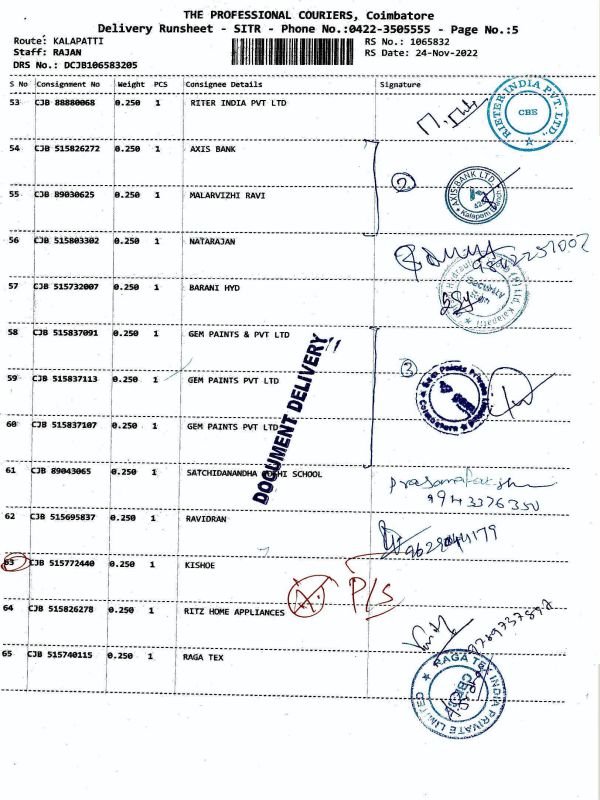 THE PROFESSIONAL COURIERS, Coimbatore
Delivery Runsheet - SITR - Phone No.:0422-3505555 - Page No.:5
Route: KALAPATTI
RS No.: 1065832
Staff: RAJAN
RS Date: 24-Nov-2022
DRS No.: DCJB106583205
S No Consignment No Weight PCS Consignee Details Signature
53 CJB 88880068 0.250 1 RITER INDIA PVT LTD
RIETER INDIA PVT. LTD.,
CBE
54 CJB 515826272 0.250 1 AXIS BANK
2
AXIS BANK LTD
55 CJB 89030625 0.250 1 MALARVIZHI RAVI
56 CJB 515803302 0.250 1 NATARAJAN
57 CJB 515732007 0.250 1 BARANI HYD
Security
58 CJB 515837091 0.250 1 GEM PAINTS & PVT LTD
DOCUMENT DELIVERY
3
59 CJB 515837113 0.250 1 GEM PAINTS PVT LTD
Gem Paints Private Limited
Coimbatore
60 CJB 515837107 0.250 1 GEM PAINTS PVT LTD
61 CJB 89043065 0.250 1 SATCHIDANANDHA JOTHI SCHOOL
9943376350
62 CJB 515695837 0.250 1 RAVIDRAN
63 CJB 515772440 0.250 1 KISHOE
P/S
64 CJB 515826278 0.250 1 RITZ HOME APPLIANCES
65 CJB 515740115 0.250 1 RAGA TEX
RAGA TEX INDIA PRIVATE LIMITED